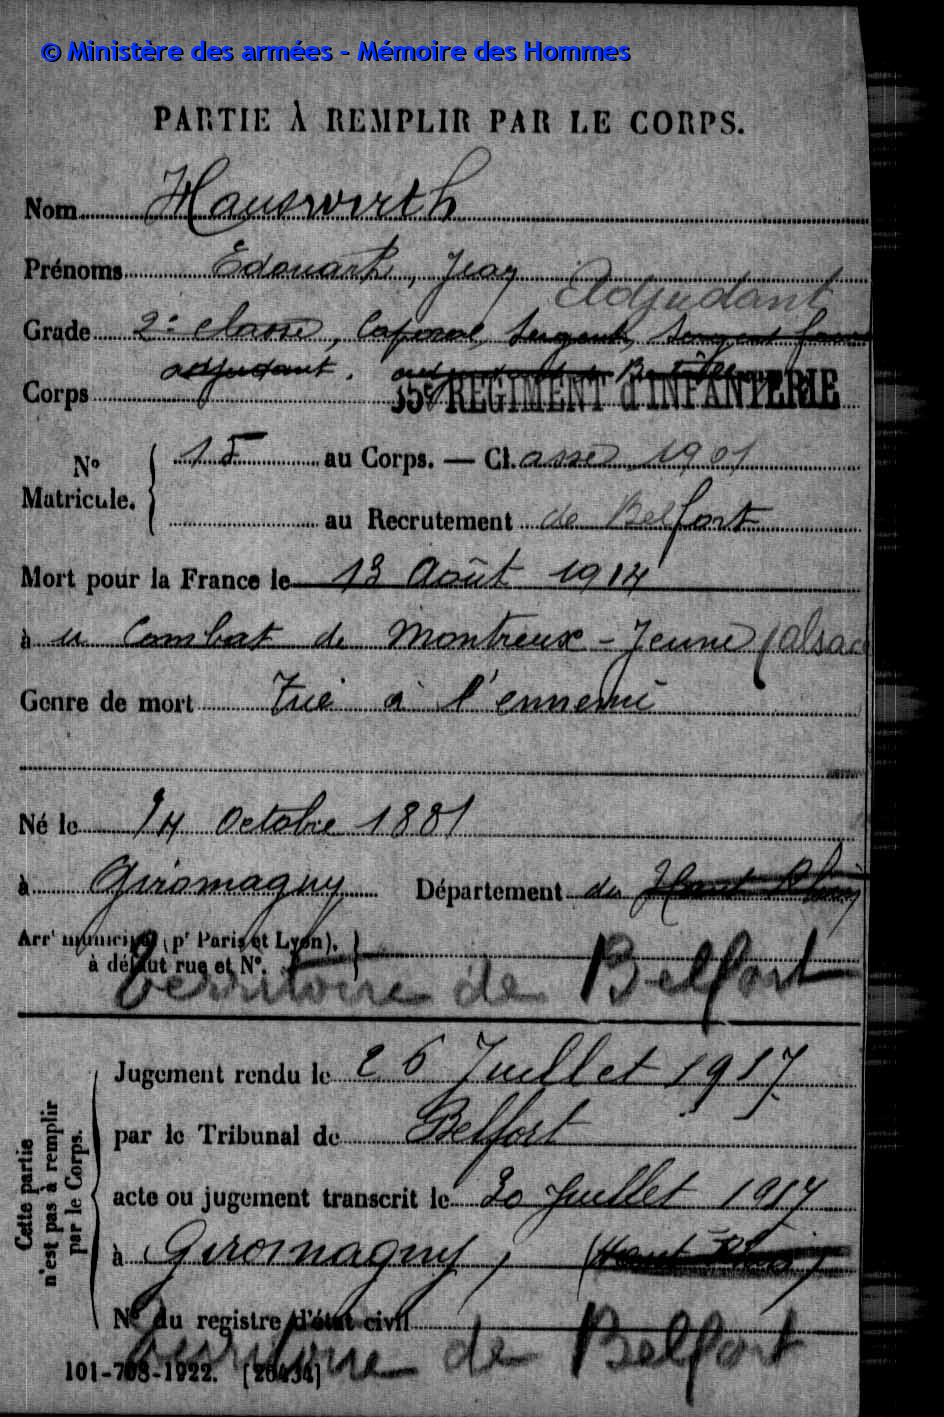 © Ministère des armées - Mémoire des Hommes
PARTIE À REMPLIR PAR LE CORPS.
Nom Hauswirth
Prénoms Edouard, Jean
Adjudant
Grade 2e classe, Caporal, Sergent, Sergent
adjudant.
Corps 35e REGIMENT d'INFANTERIE
No Matricule. 15 au Corps. — Cl.asse 1901
au Recrutement de Belfort
Mort pour la France le 13 Août 1914
à u Combat de Montreux-Jeune (alsace
Genre de mort Tué à l'ennemi
Né le 14 Octobre 1881
à Giromagny Département du Haut Rhin
Arrt municipal (pr Paris et Lyon),
à défaut rue et No.
Territoire de Belfort
Cette partie n'est pas à remplir par le Corps.
Jugement rendu le 26 Juillet 1917
par le Tribunal de Belfort
acte ou jugement transcrit le 30 Juillet 1917
à Giromagny, (Haut Rhin)
No du registre d'état civil
Territoire de Belfort
101-708-1922. [26434]